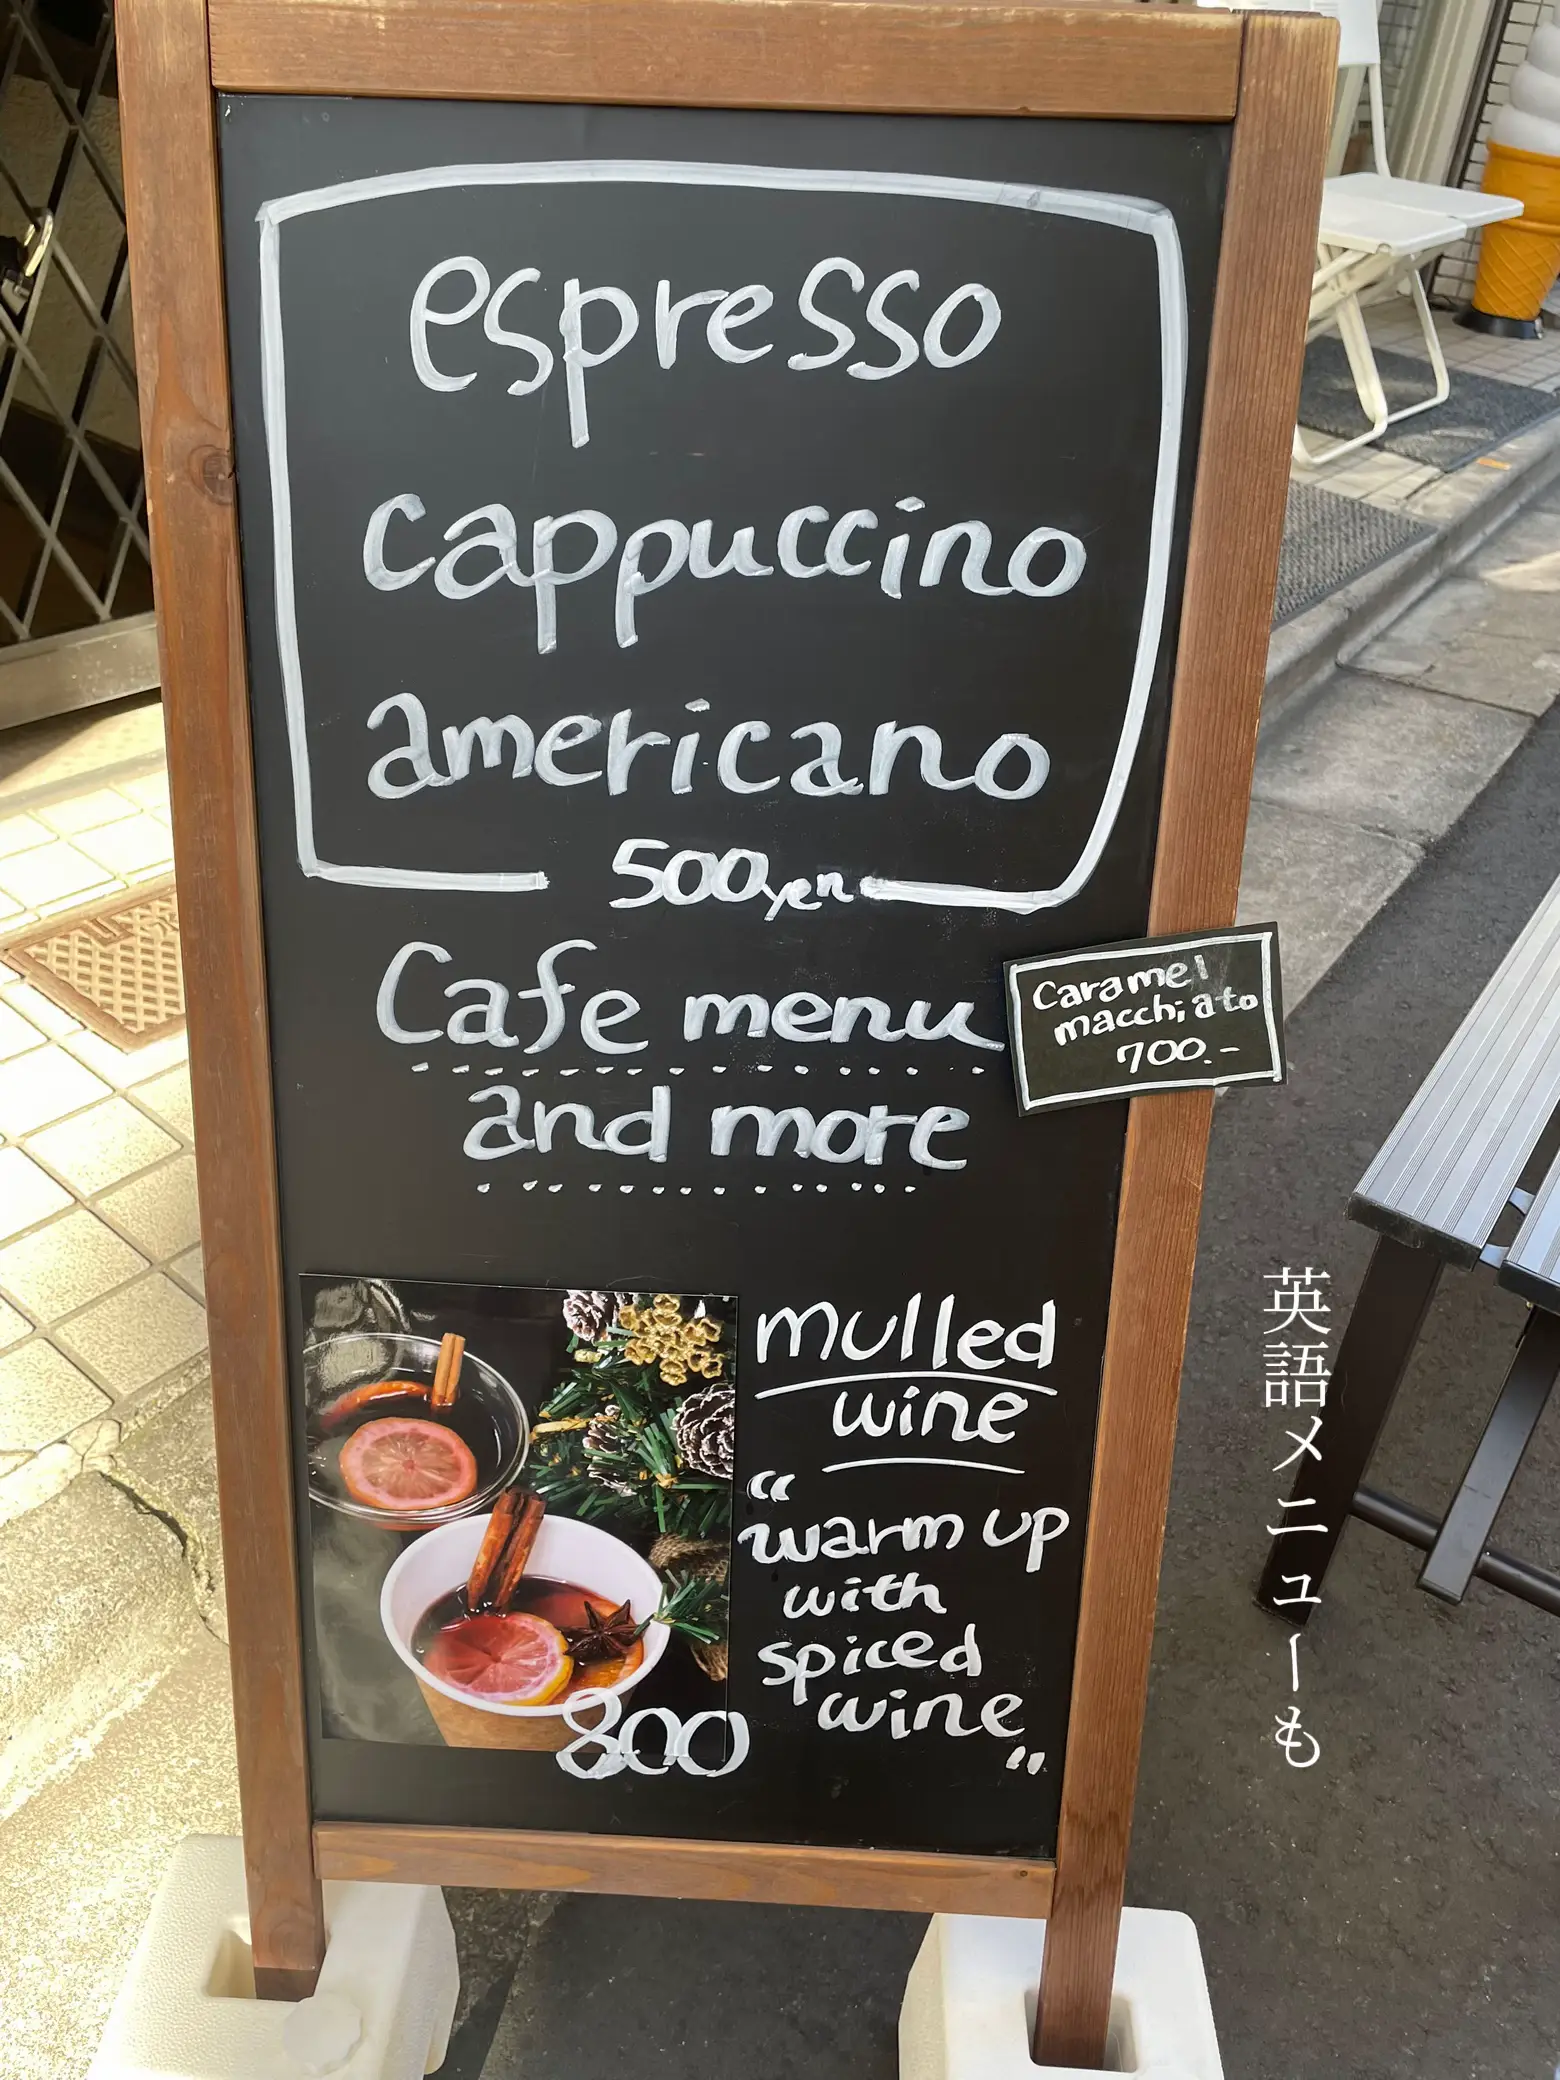 espresso
cappuccino
americano
500yen
Cafe menu
and more
Caramel
macchiato
700.-
mulled
wine
"
warm up
with
spiced
wine
"
800
英語メニューも